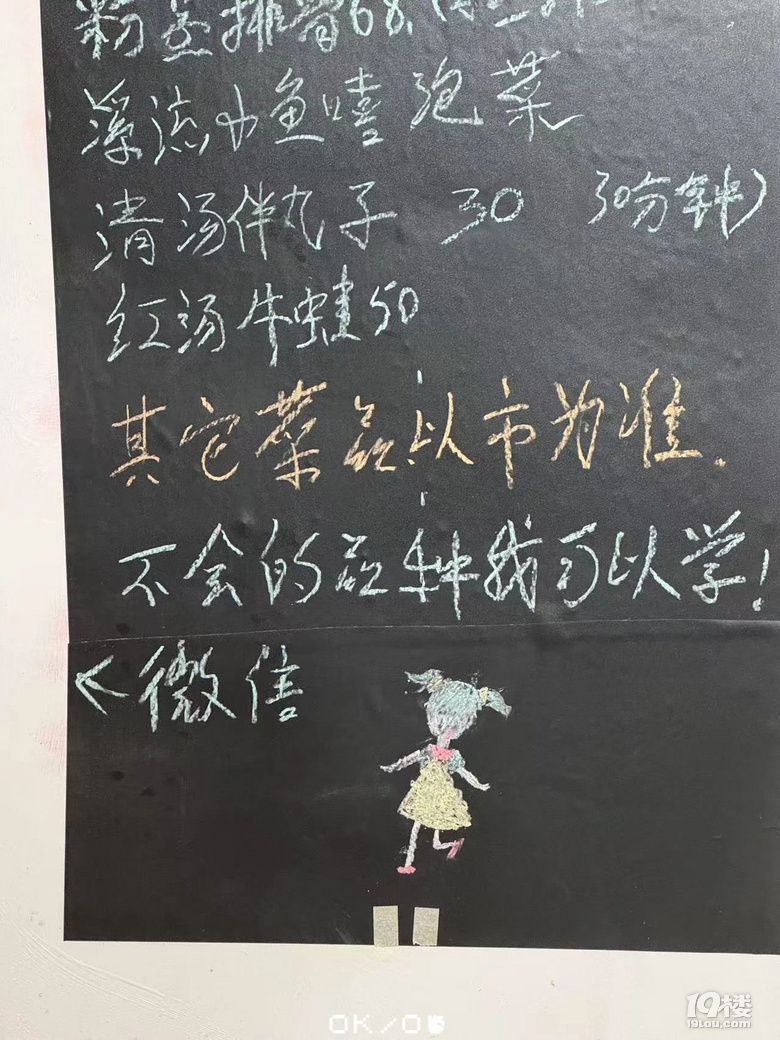 粉蒸排骨68.(
溪流小鱼嘻泡菜
清汤伴丸子 30 30分钟)
红汤牛蛙50
其它菜品以市为准.
不会的品种我可以学!
<微信
OK/0
19楼
19lou.com